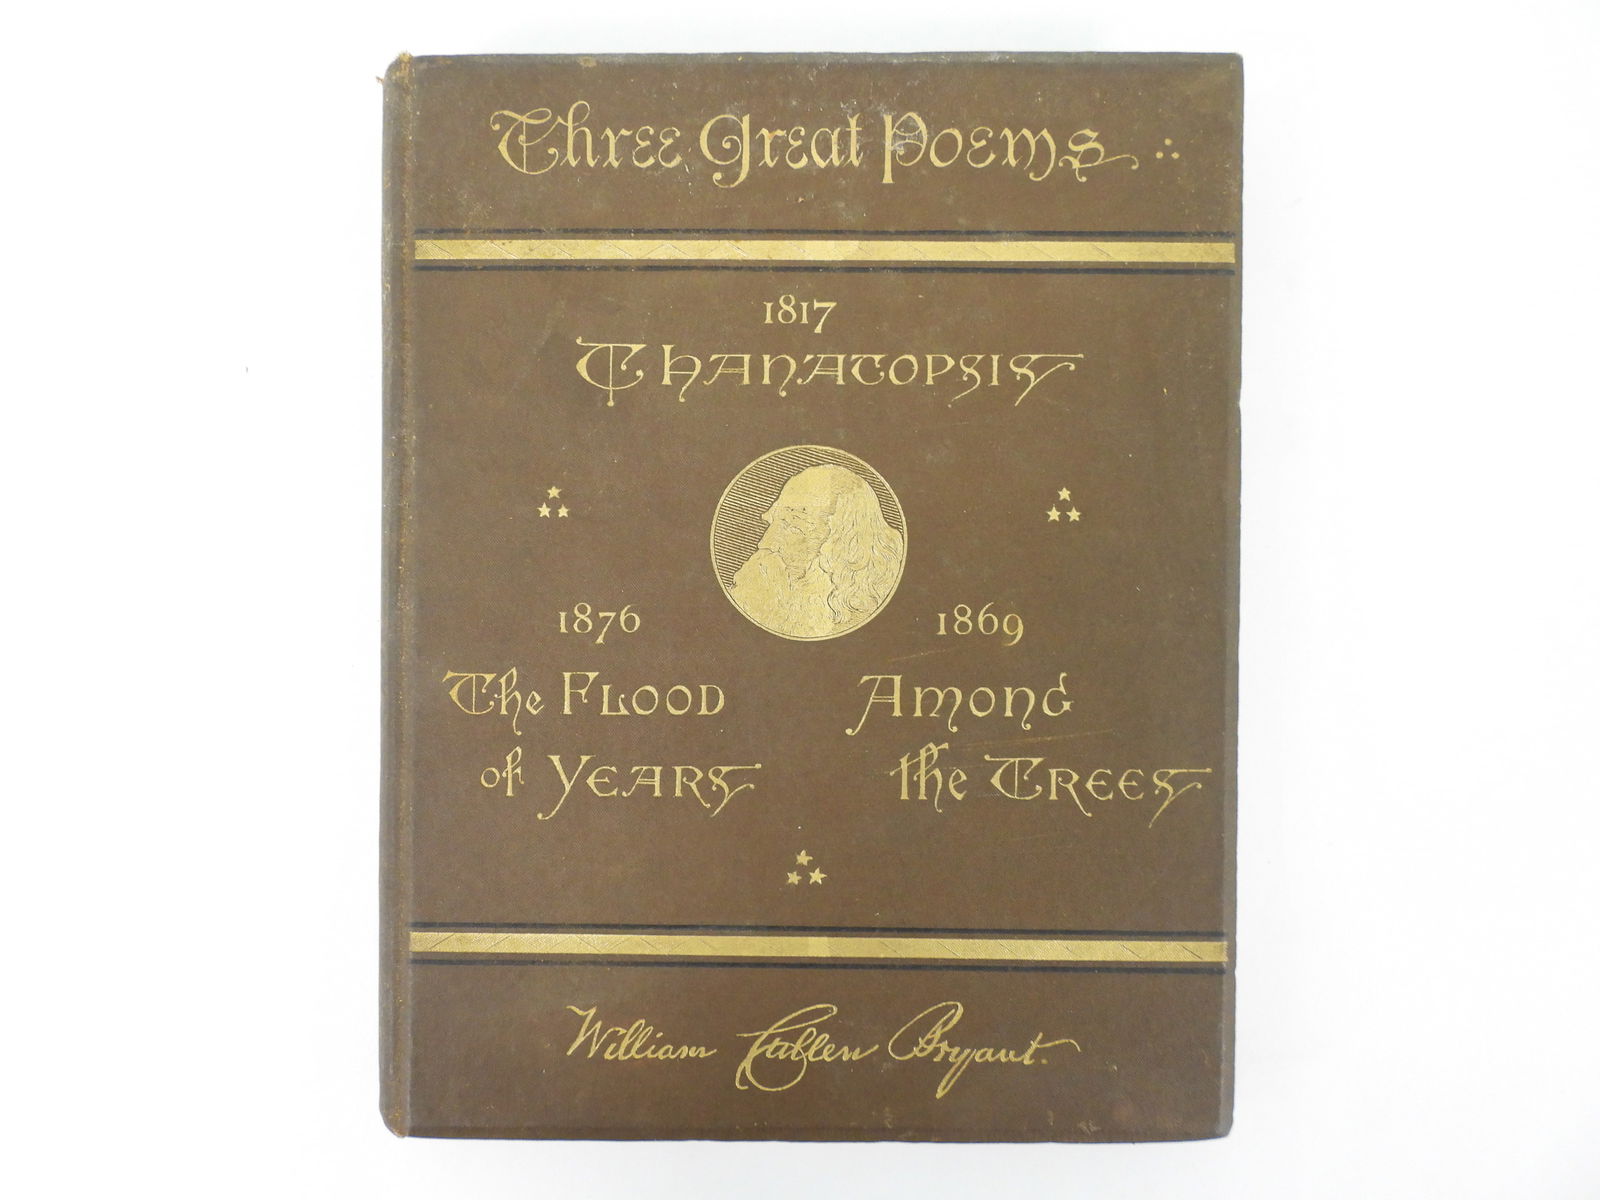 Three Great Poems
1817
Thanatopsis
1876
The Flood
of Years
1869
Among
the Trees
William Cullen Bryant.